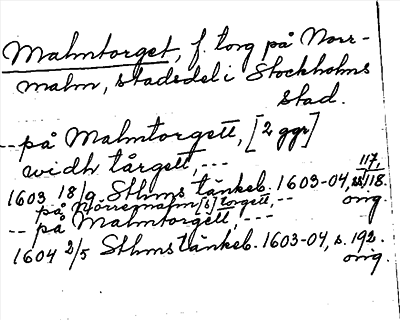 Malmtorget, f. torg på Norr-
malm, stadsdel i Stockholms
stad.
-- på Malmtorgett, [2 ggr]
widh tårgett, ---
1603 18/9 Sthms tänkeb. 1603-04, s. 117, 118.
på Norremalm/s/ torgett, --
orig.
-- på Malmtorgett, ---
1604 2/5 Sthms tänkeb. 1603-04, s. 192.
orig.